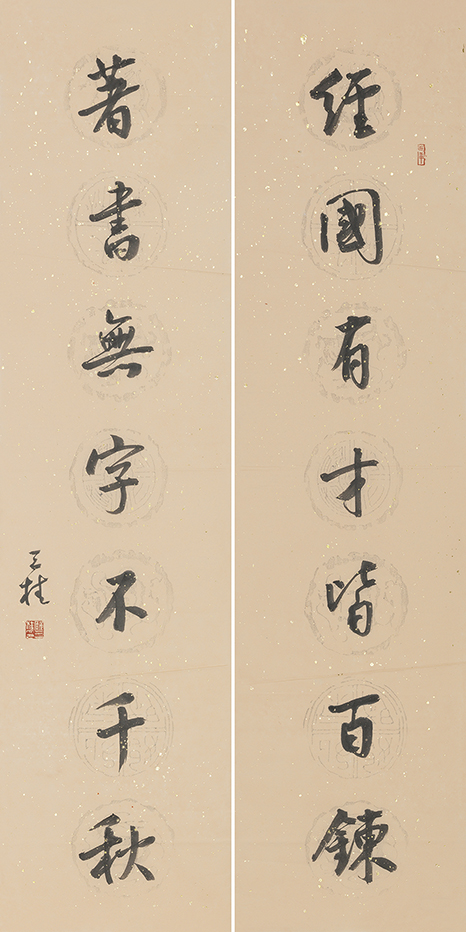 經國有才皆百鍊
著書無字不千秋
三桂